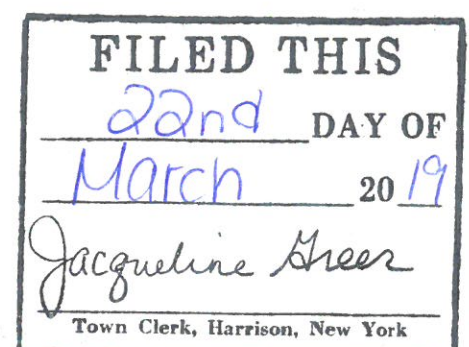 FILED THIS
22nd DAY OF
March 20 19
Jacqueline Greer
Town Clerk, Harrison, New York